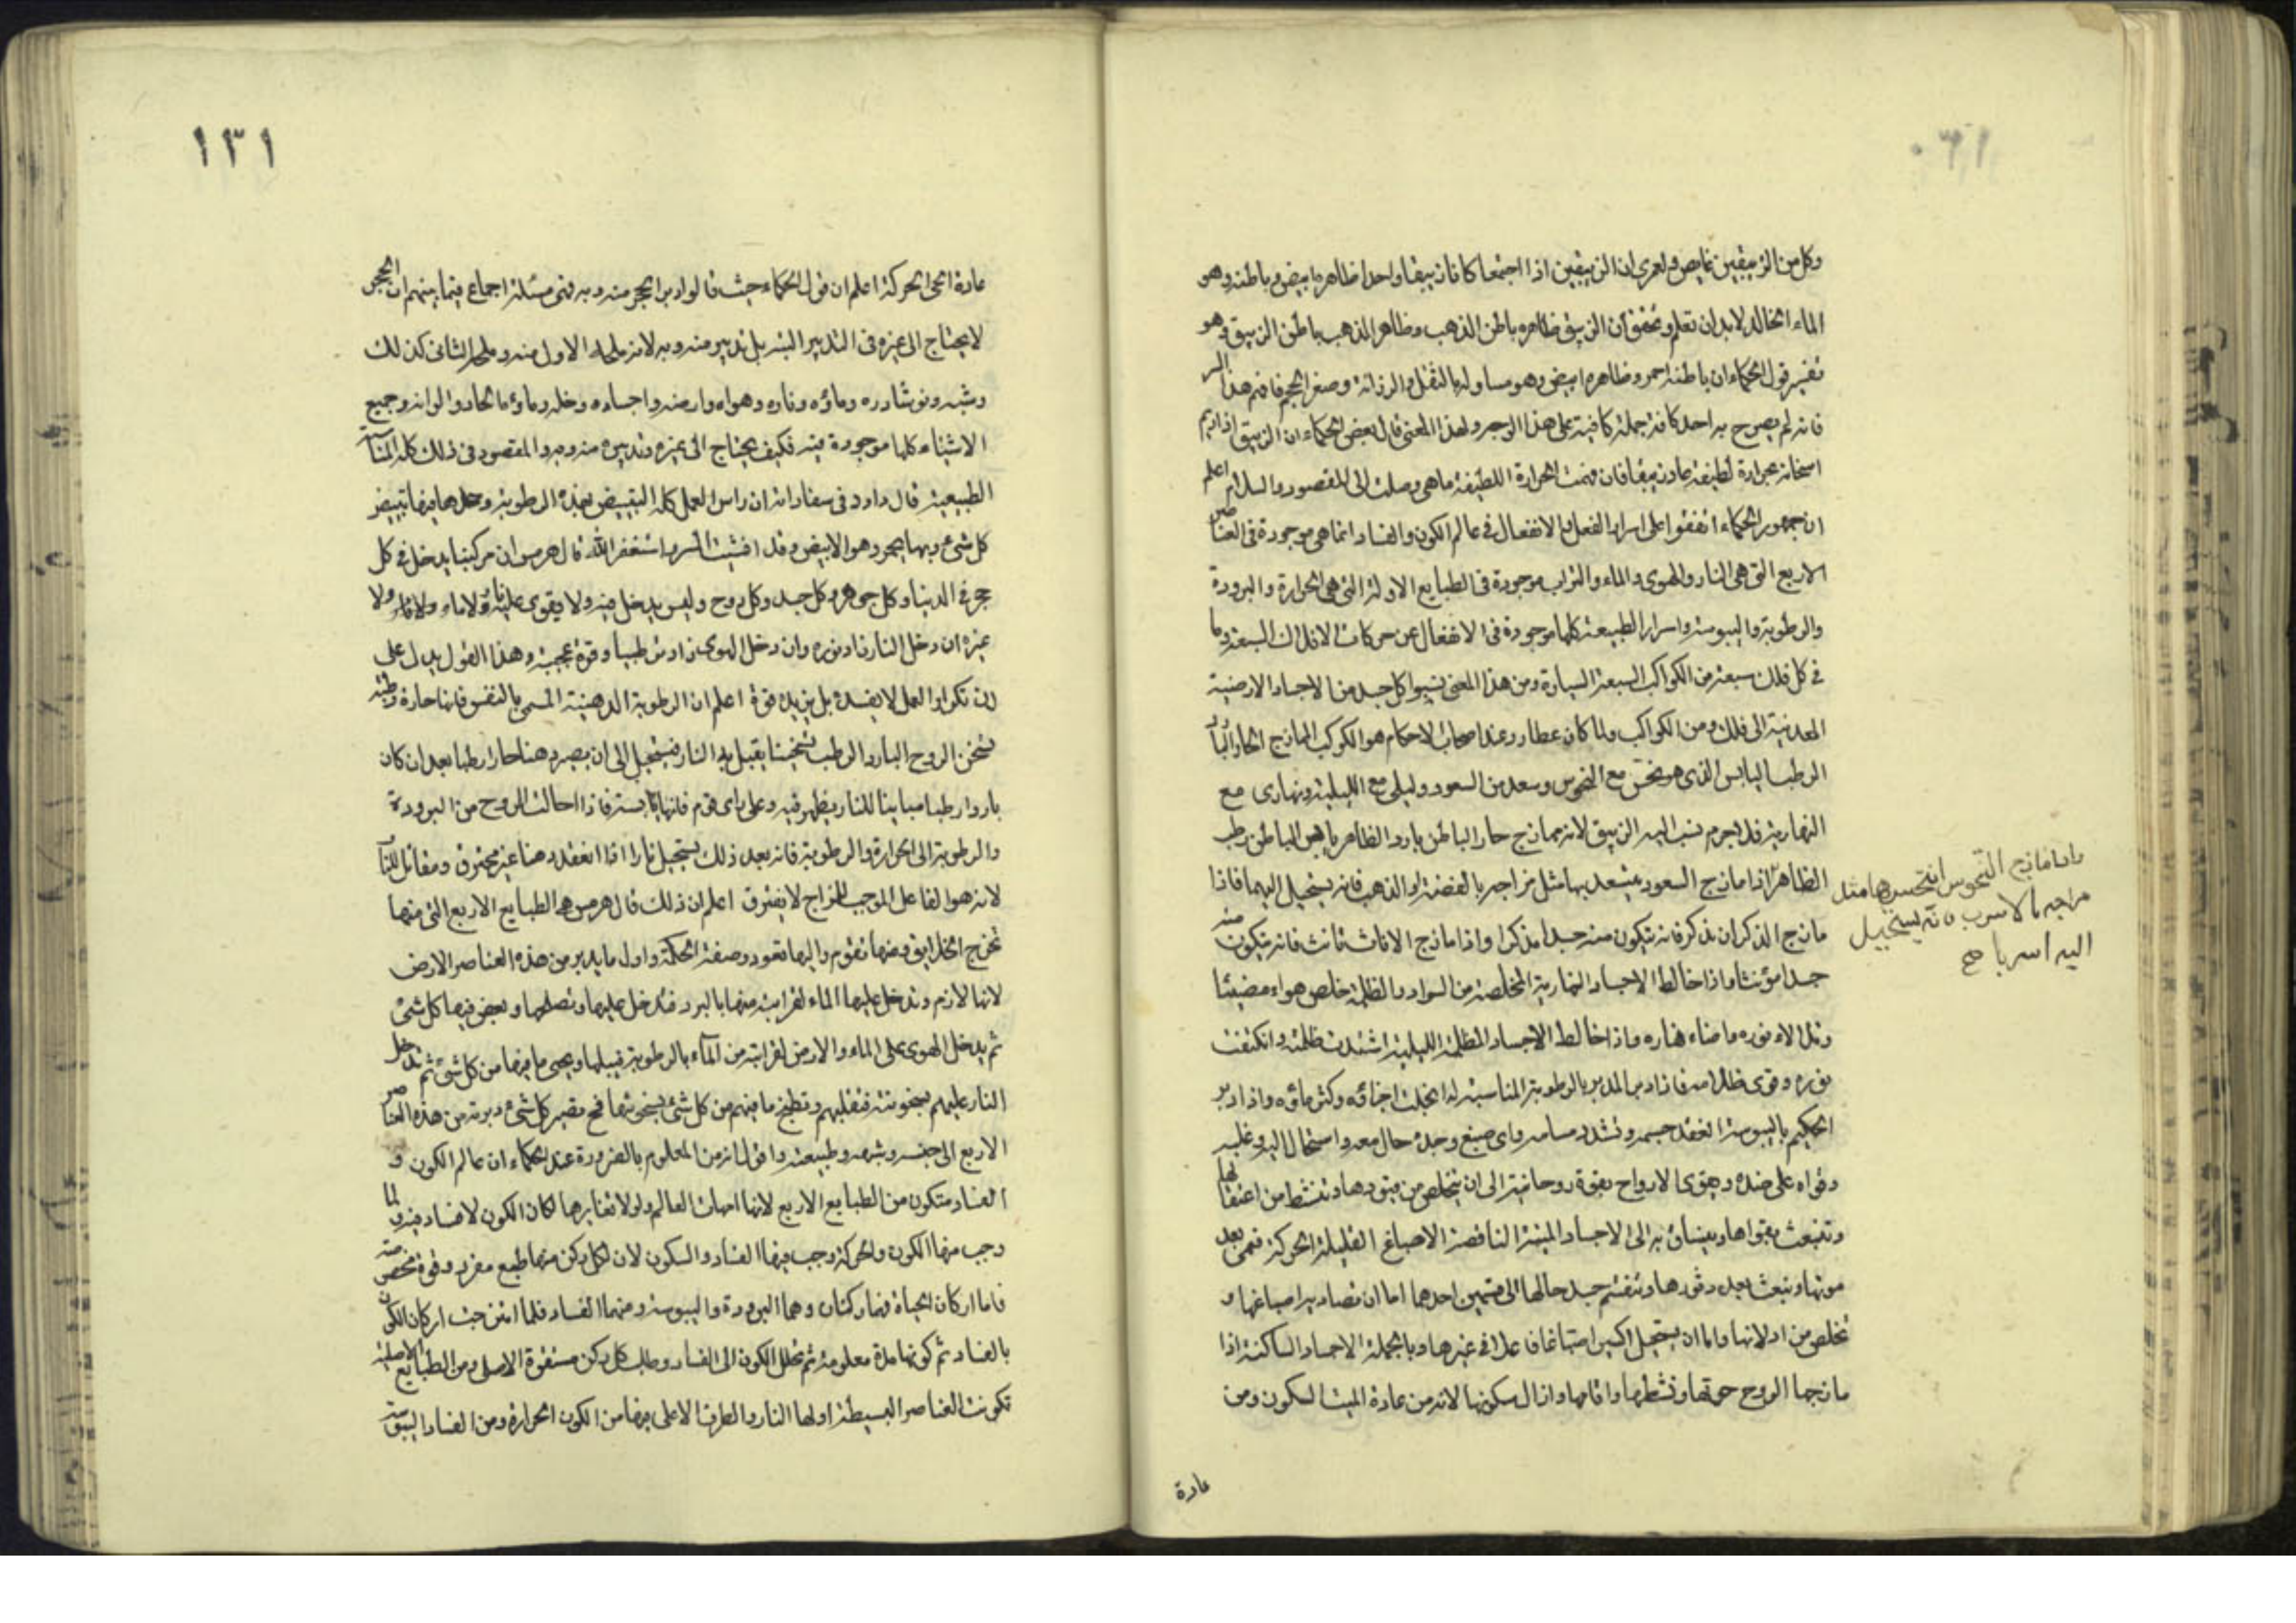 وكل من الزيبقين غايص ولعمرى ان الزيبقين اذا اجتمعا كانا زيبقا واحدا ظاهره ابيض وباطنه وهو
الماء الخالد لابد ان تعلم وتحقق ان الزيبق ظاهره باطن الذهب وظاهر الذهب باطن الزيبق وهو
تفسير قول الحكماء ان باطنه احمر وظاهره ابيض وهو مساو له بالثقل والرزانة وصغر الحجم فافهم هذا السر
فانه لم يصرح به احد كافة جملة كافية على هذا الوجه ولهذا المعنى قال بعض الحكماء ان الزيبق اذا اديم
اسخانه بحرارة لطيفة عاد زيبقا فان فهمت الحرارة اللطيفة ما هى وصلت الى المقصود والسلام اعلم
ان جمهور الحكماء اتفقوا على اسرار الفعل والانفعال فى عالم الكون والفساد انما هى موجودة فى العناصر
الاربع التى هى النار والهوى والماء والتراب موجودة فى الطبايع الاولة التى هى الحرارة والبرودة
والرطوبة واليبوسة واسرار الطبيعة كلها موجودة فى الانفعال عن حركات الافلاك السبعة وما
فى كل فلك سبعة من الكواكب السبعة السيارة ومن هذا المعنى نسبوا كل جسد من الاجساد الارضية
المعدنية الى فلك ومن الكواكب ولما كان عطارد عند اصحاب الاحكام هو الكوكب المازج الحار البارد
الرطب اليابس الذى هو نحس مع النحوس وسعد من السعود وليلى مع الليلية ونهارى مع
النهارية فلا جرم نسب اليه الزيبق لانه ممازج حار الباطن بارد الظاهر يابس الباطن رطب
الظاهر اذا مازج السعود يتسعد بها مثل مزاجه بالفضة او الذهب فانه يستحيل اليهما فاذا
واما مازج النحوس انتحس بها مثل
مزاجه بالاسرب فانه يستحيل
اليه اسربا صح
مازج الذكران تذكر فانه يتكون منه جسدا مذكرا واذا مازج الاناث تانث فانه يتكون منه
جسدا مؤنثا واذا خالط الاجساد النهارية المخلصة من السواد والظلمة خلص هواء مضيئا
وتلالاء نوره واضاء نهاره واذا خالط الاجساد المظلمة الليلية اشتدت ظلمته وانكتفت
نوره وقوى ظلامه فاذا دبر المدبر بالرطوبة المناسبة له انحلت اجزاؤه وكثر ماؤه واذا دبر
الحكيم باليبوسة انعقد جسمه وتشدد مسامه واى صبغ وجده حال معه واستحال اليه وغلبه
وقواه على ضده ويقوى الارواح بقوة روحانية الى ان يتخلص من قيودها وتنشط من اعتقالها
وتنبعث بقواها وينساق به الى الاجساد الميتة الناقصة الاصباغ القليلة الحركة فتحى بعد
موتها وتبعث بعد رقودها وتنقسم جسد حالها الى قسمين احدهما اما ان تصادير اصباغها و
تخلص من ادلانها واما ان يستحيل اكسيرا صباغا فاعلا فى غيرها وبالجملة الاجساد الساكنة اذا
مازجها الروح حركتها ونشطها واقامها وازال سكونها لانه من عادة الميت السكون ومن
عادة
١٣١
عادة الحى الحركة اعلم ان قول الحكماء حيث قالوا دبر الحجر منه وبه فهى مسئلة اجماع فيما بينهم ان الحجر
لا يحتاج الى غيره فى التدبير البتة بل تدبيره منه وبه لانه ملحه الاول منه وملحه الثانى كذلك
وشبه ونوشادره وماؤه وناره وهواه وارضه واجساده وخله وماؤه الحاد والوانه وجميع
الاشياء كلها موجودة فيه فكيف يحتاج الى غيره وتدبيره منه وبه والمقصود فى ذلك كله المناسبة
الطبيعية قال داود فى سفاراته ان راس العمل كله التبييض بهذه الرطوبة وحدها فيها تبييض
كل شىء وبها يحمر وهو الابيض وقد افشيت السر واستغفر الله قال هرمس ان مركبنا يدخل فى كل
حجر فى الدنيا وكل جوهر وكل جسد وكل روح وليس يدخل فيه ولا يقوى عليه نار ولا ماء ولا
غيره ان دخل النار زاد نوره وان دخل الهوى زاد من طيبا وقوة عجيبة وهذا القول يدل على
ان تكرار العمل لا يفسده بل يزيده قوة اعلم ان الرطوبة الدهنية المسمى بالنفس فانها حارة رطبة
تسخن الروح البارد الرطب تسخينا يقبل به النار فيستحيل الى ان يصير دهنا حارا رطبا بعد ان كان
باردا رطبا مباينا للنار يظهر فيه وعلى راى قوم فانها يابسة فاذا احالت الروح من البرودة
والرطوبة الى الحرارة والرطوبة فانه بعد ذلك يستحيل نارا اذا انعقد دهنا غير محترق ومقاتل للنار
لانه هو الفاعل الموجب المزاج لا يفترق اعلم ان ذلك قال هرمس هى الطبايع الاربع التى منها
تخرج الخلايق ومنها تقوم واليها تعود وصفة الحكمة واول ما يدبر من هذه العناصر الارض
لانها لازم وتدخل عليها الماء لقرابته منها بالبرد فتدخل عليها وتصلحها ويعض فيها كل شىء
ثم يدخل الهوى على الماء والارض لقرابته من الماء بالرطوبة فيبلها ويحيى ما فيها من كل شىء ثم تدخل
النار عليهم بسخونته فتقلبهم وتطبخ ما فيهم من كل شىء بسخونتها فح تصير كل شىء دبرته من هذه العناصر
الاربع الى جنسه وشبهه وطبيعته واقول انه من المعلوم بالضرورة عند الحكماء ان عالم الكون و
الفساد متكون من الطبايع الاربع لانها امهات العالم ولولا تغايرها لكان الكون لا فساد فيه ولما
وجب منها الكون والحركة وجب فيها الفساد والسكون لان لكل ركن منها طبع مفرد وقوة مختصة
فاما اركان الحياة فيها ركنان وهما البرودة واليبوسة ومنهما الفساد فلما امتزجت اركان الكون
بالفساد ثم كونها مدة معلومة ثم تحلل الكون الى الفساد وطلب كل ركن مستقره الاصلى ومن الطبايع الاصلية
تكونت العناصر البسيطة اولها النار والطرف الاعلى فيها من الكون الحرارة ومن الفساد اليبوسة